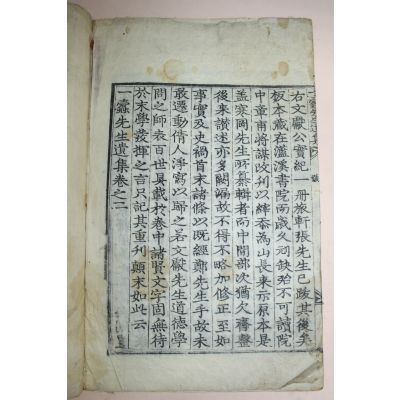 右文獻公實紀一冊旅軒張先生已跋其後矣
板本藏在灆溪書院而歲久刓缺殆不可讀院
中章甫將謀改刋以絳忝爲山長來示原本是
盖寒岡先生所纂輯者而中間部次猶欠齋整
後來讃述亦多闕漏故不得不略加修正至如
事實及史禍首末諸條以旣經鄭先生手故未
敢遷動倩人淨寫以歸之若文獻先生道德學
問之師表百世具載於卷中諸賢文字固無待
於末學發揮之言只記其重刋顚末如此云
一蠹先生遺集卷之二